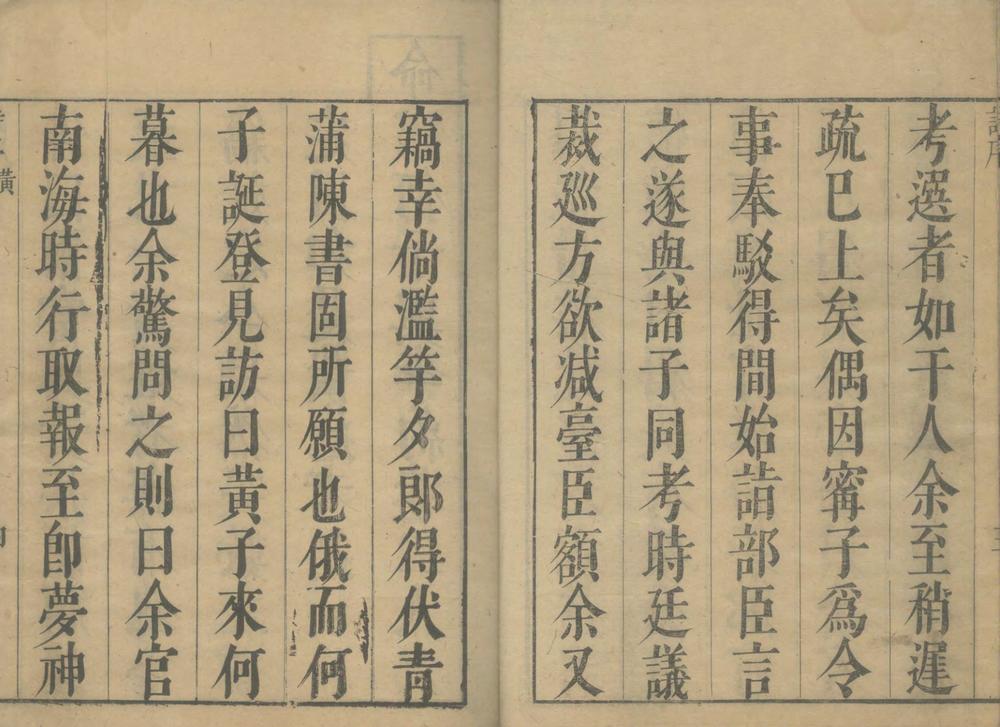 考選者如干人余至稍遲
疏已上矣偶因寗子爲令
事奉駁得間始詣部臣言
之遂與諸子同考時廷議
裁巡方欲减臺臣額余又
竊幸倘濫竽夕郎得伏青
蒲陳書固所願也俄而何
子誕登見訪曰黃子來何
暮也余驚問之則曰余官
南海時行取報至卽夢神